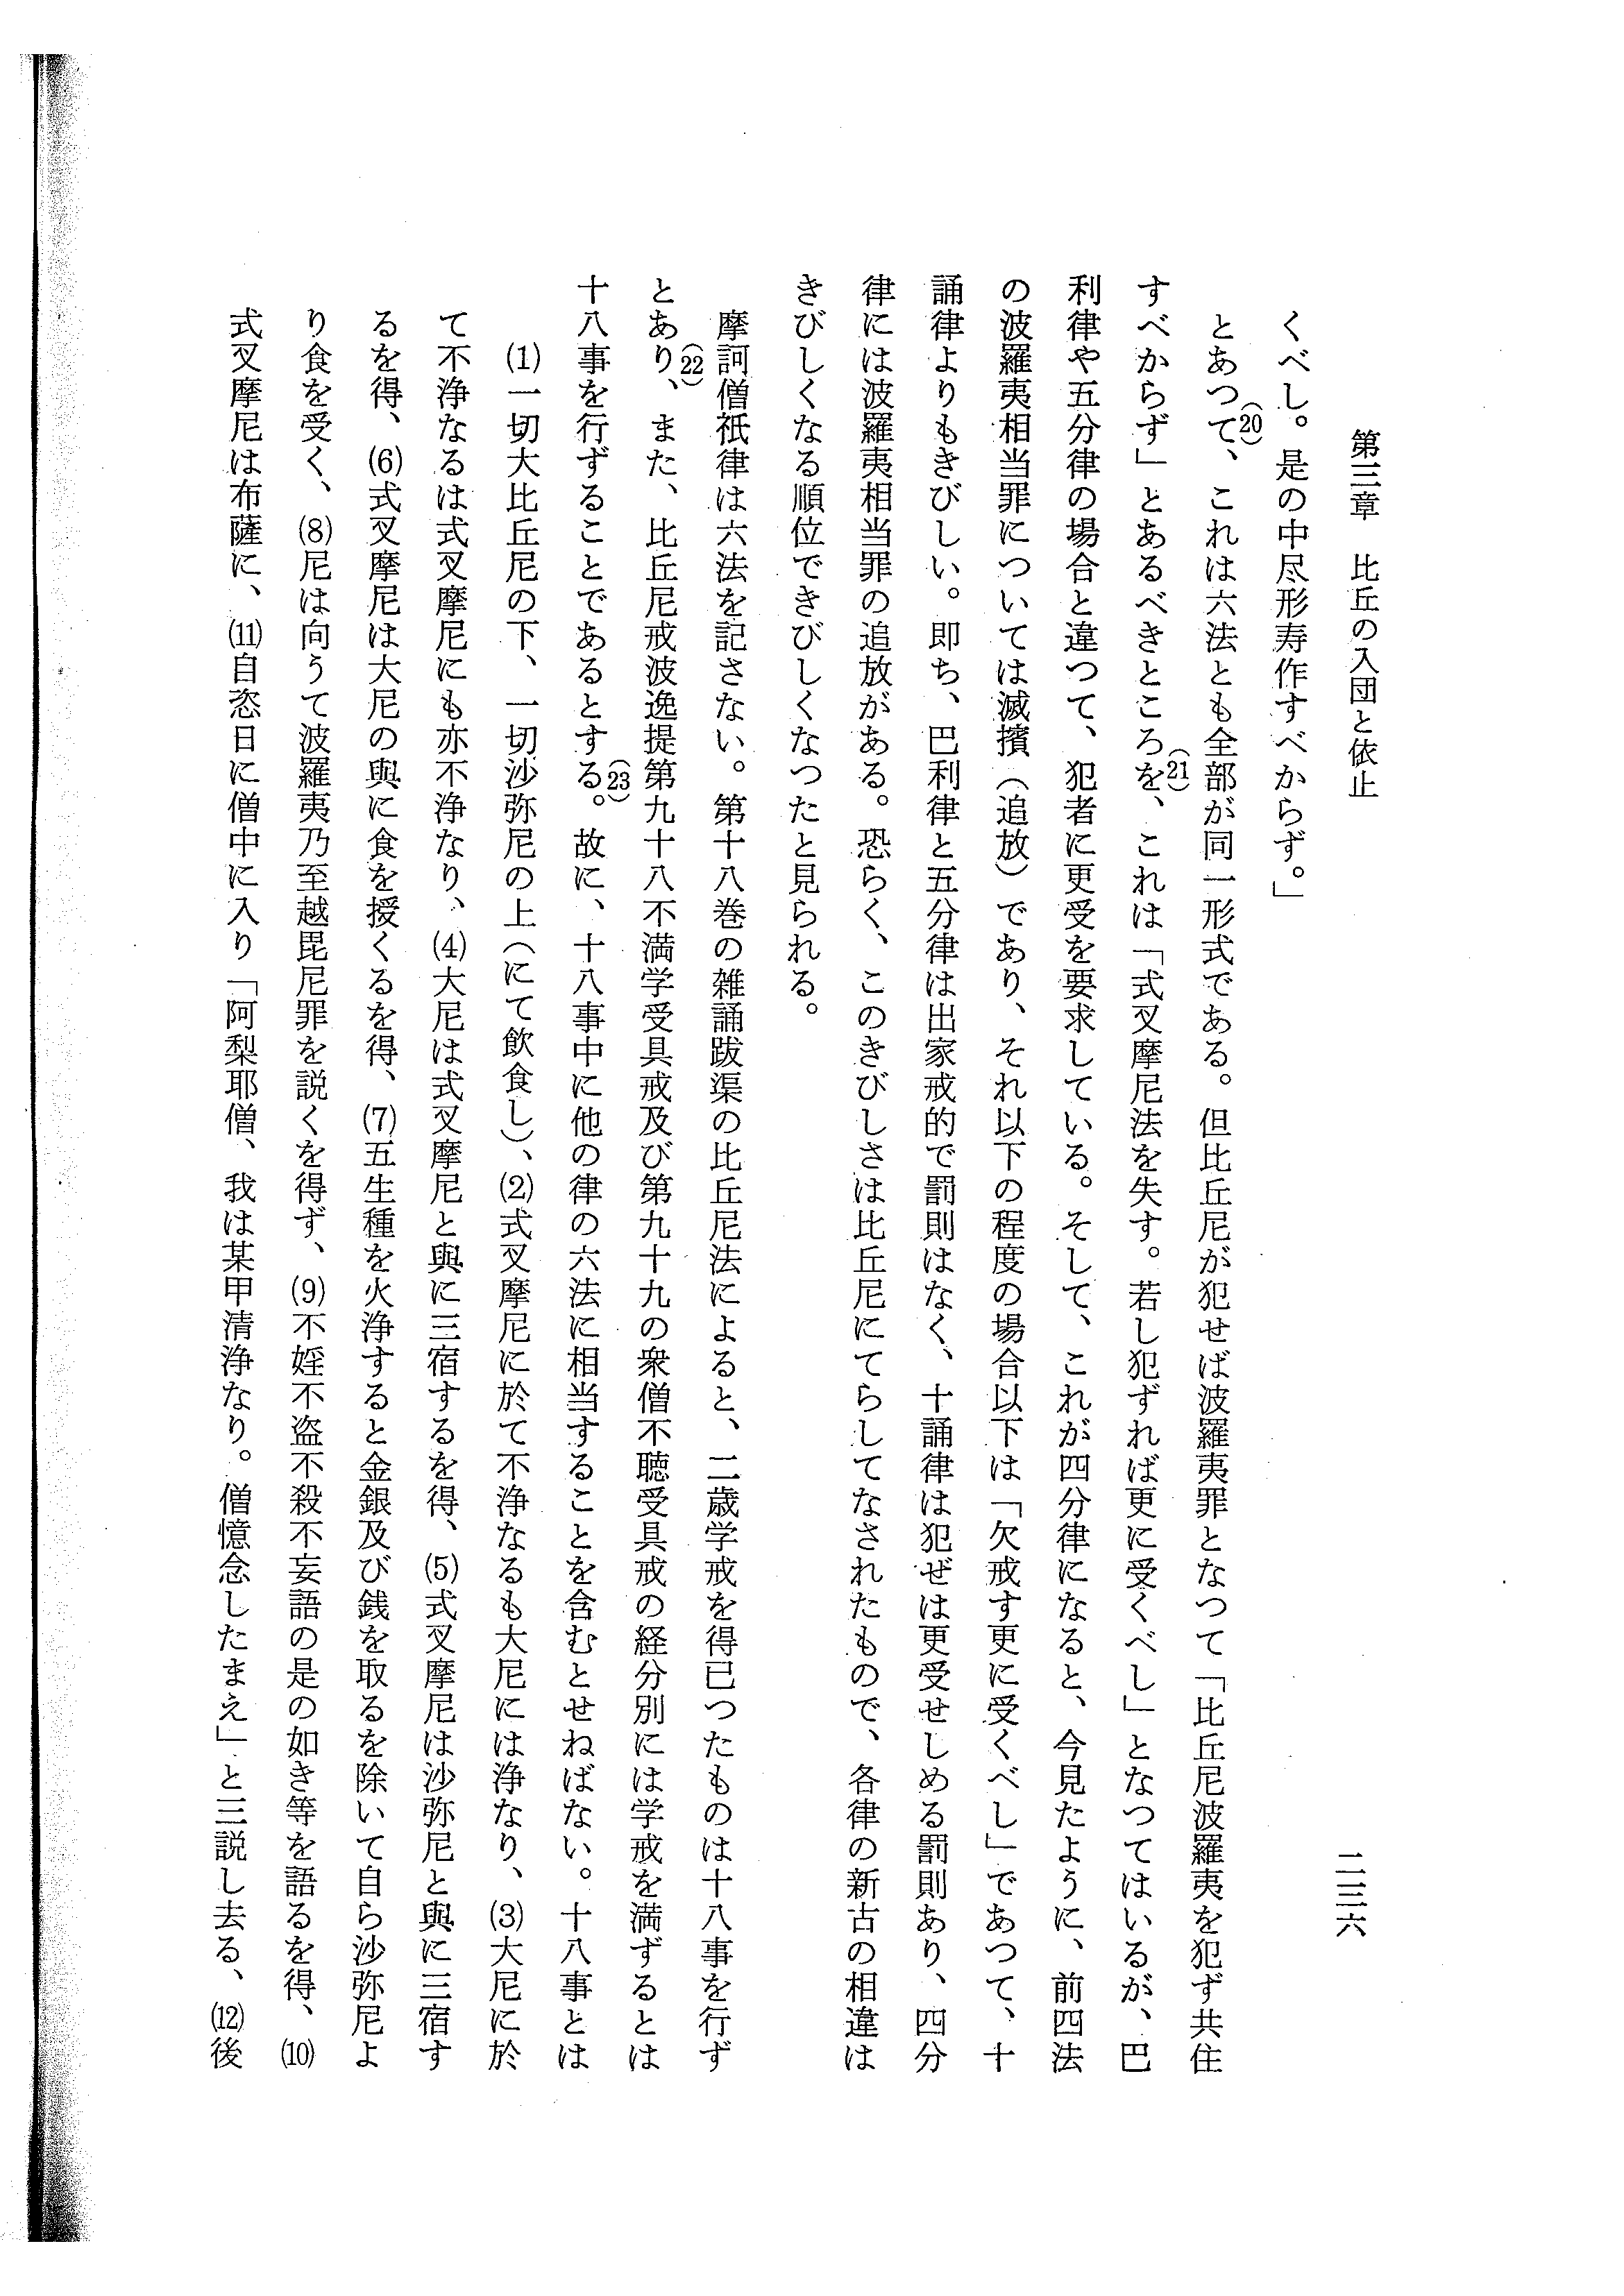 第三章　比丘の入団と依止
二三六
くべし。是の中尽形寿作すべからず。」
とあつて、(20)これは六法とも全部が同一形式である。但比丘尼が犯せば波羅夷罪となつて「比丘尼波羅夷を犯ず共住
すべからず」とあるべきところを、(21)これは「式叉摩尼法を失す。若し犯ずれば更に受くべし」となつてはいるが、巴
利律や五分律の場合と違つて、犯者に更受を要求している。そして、これが四分律になると、今見たように、前四法
の波羅夷相当罪については滅擯（追放）であり、それ以下の程度の場合以下は「欠戒す更に受くべし」であつて、十
誦律よりもきびしい。即ち、巴利律と五分律は出家戒的で罰則はなく、十誦律は犯ぜは更受せしめる罰則あり、四分
律には波羅夷相当罪の追放がある。恐らく、このきびしさは比丘尼にてらしてなされたもので、各律の新古の相違は
きびしくなる順位できびしくなつたと見られる。
摩訶僧祇律は六法を記さない。第十八巻の雑誦跋渠の比丘尼法によると、二歳学戒を得已つたものは十八事を行ず
とあり、(22)また、比丘尼戒波逸提第九十八不満学受具戒及び第九十九の衆僧不聴受具戒の経分別には学戒を満ずるとは
十八事を行ずることであるとする。(23)故に、十八事中に他の律の六法に相当することを含むとせねばない。十八事とは
(1)一切大比丘尼の下、一切沙弥尼の上（にて飲食し）、(2)式叉摩尼に於て不浄なるも大尼には浄なり、(3)大尼に於
て不浄なるは式叉摩尼にも亦不浄なり、(4)大尼は式叉摩尼と與に三宿するを得、(5)式叉摩尼は沙弥尼と與に三宿す
るを得、(6)式叉摩尼は大尼の與に食を授くるを得、(7)五生種を火浄すると金銀及び銭を取るを除いて自ら沙弥尼よ
り食を受く、(8)尼は向うて波羅夷乃至越毘尼罪を説くを得ず、(9)不婬不盗不殺不妄語の是の如き等を語るを得、(10)
式叉摩尼は布薩に、(11)自恣日に僧中に入り「阿梨耶僧、我は某甲清浄なり。僧憶念したまえ」と三説し去る、(12)後